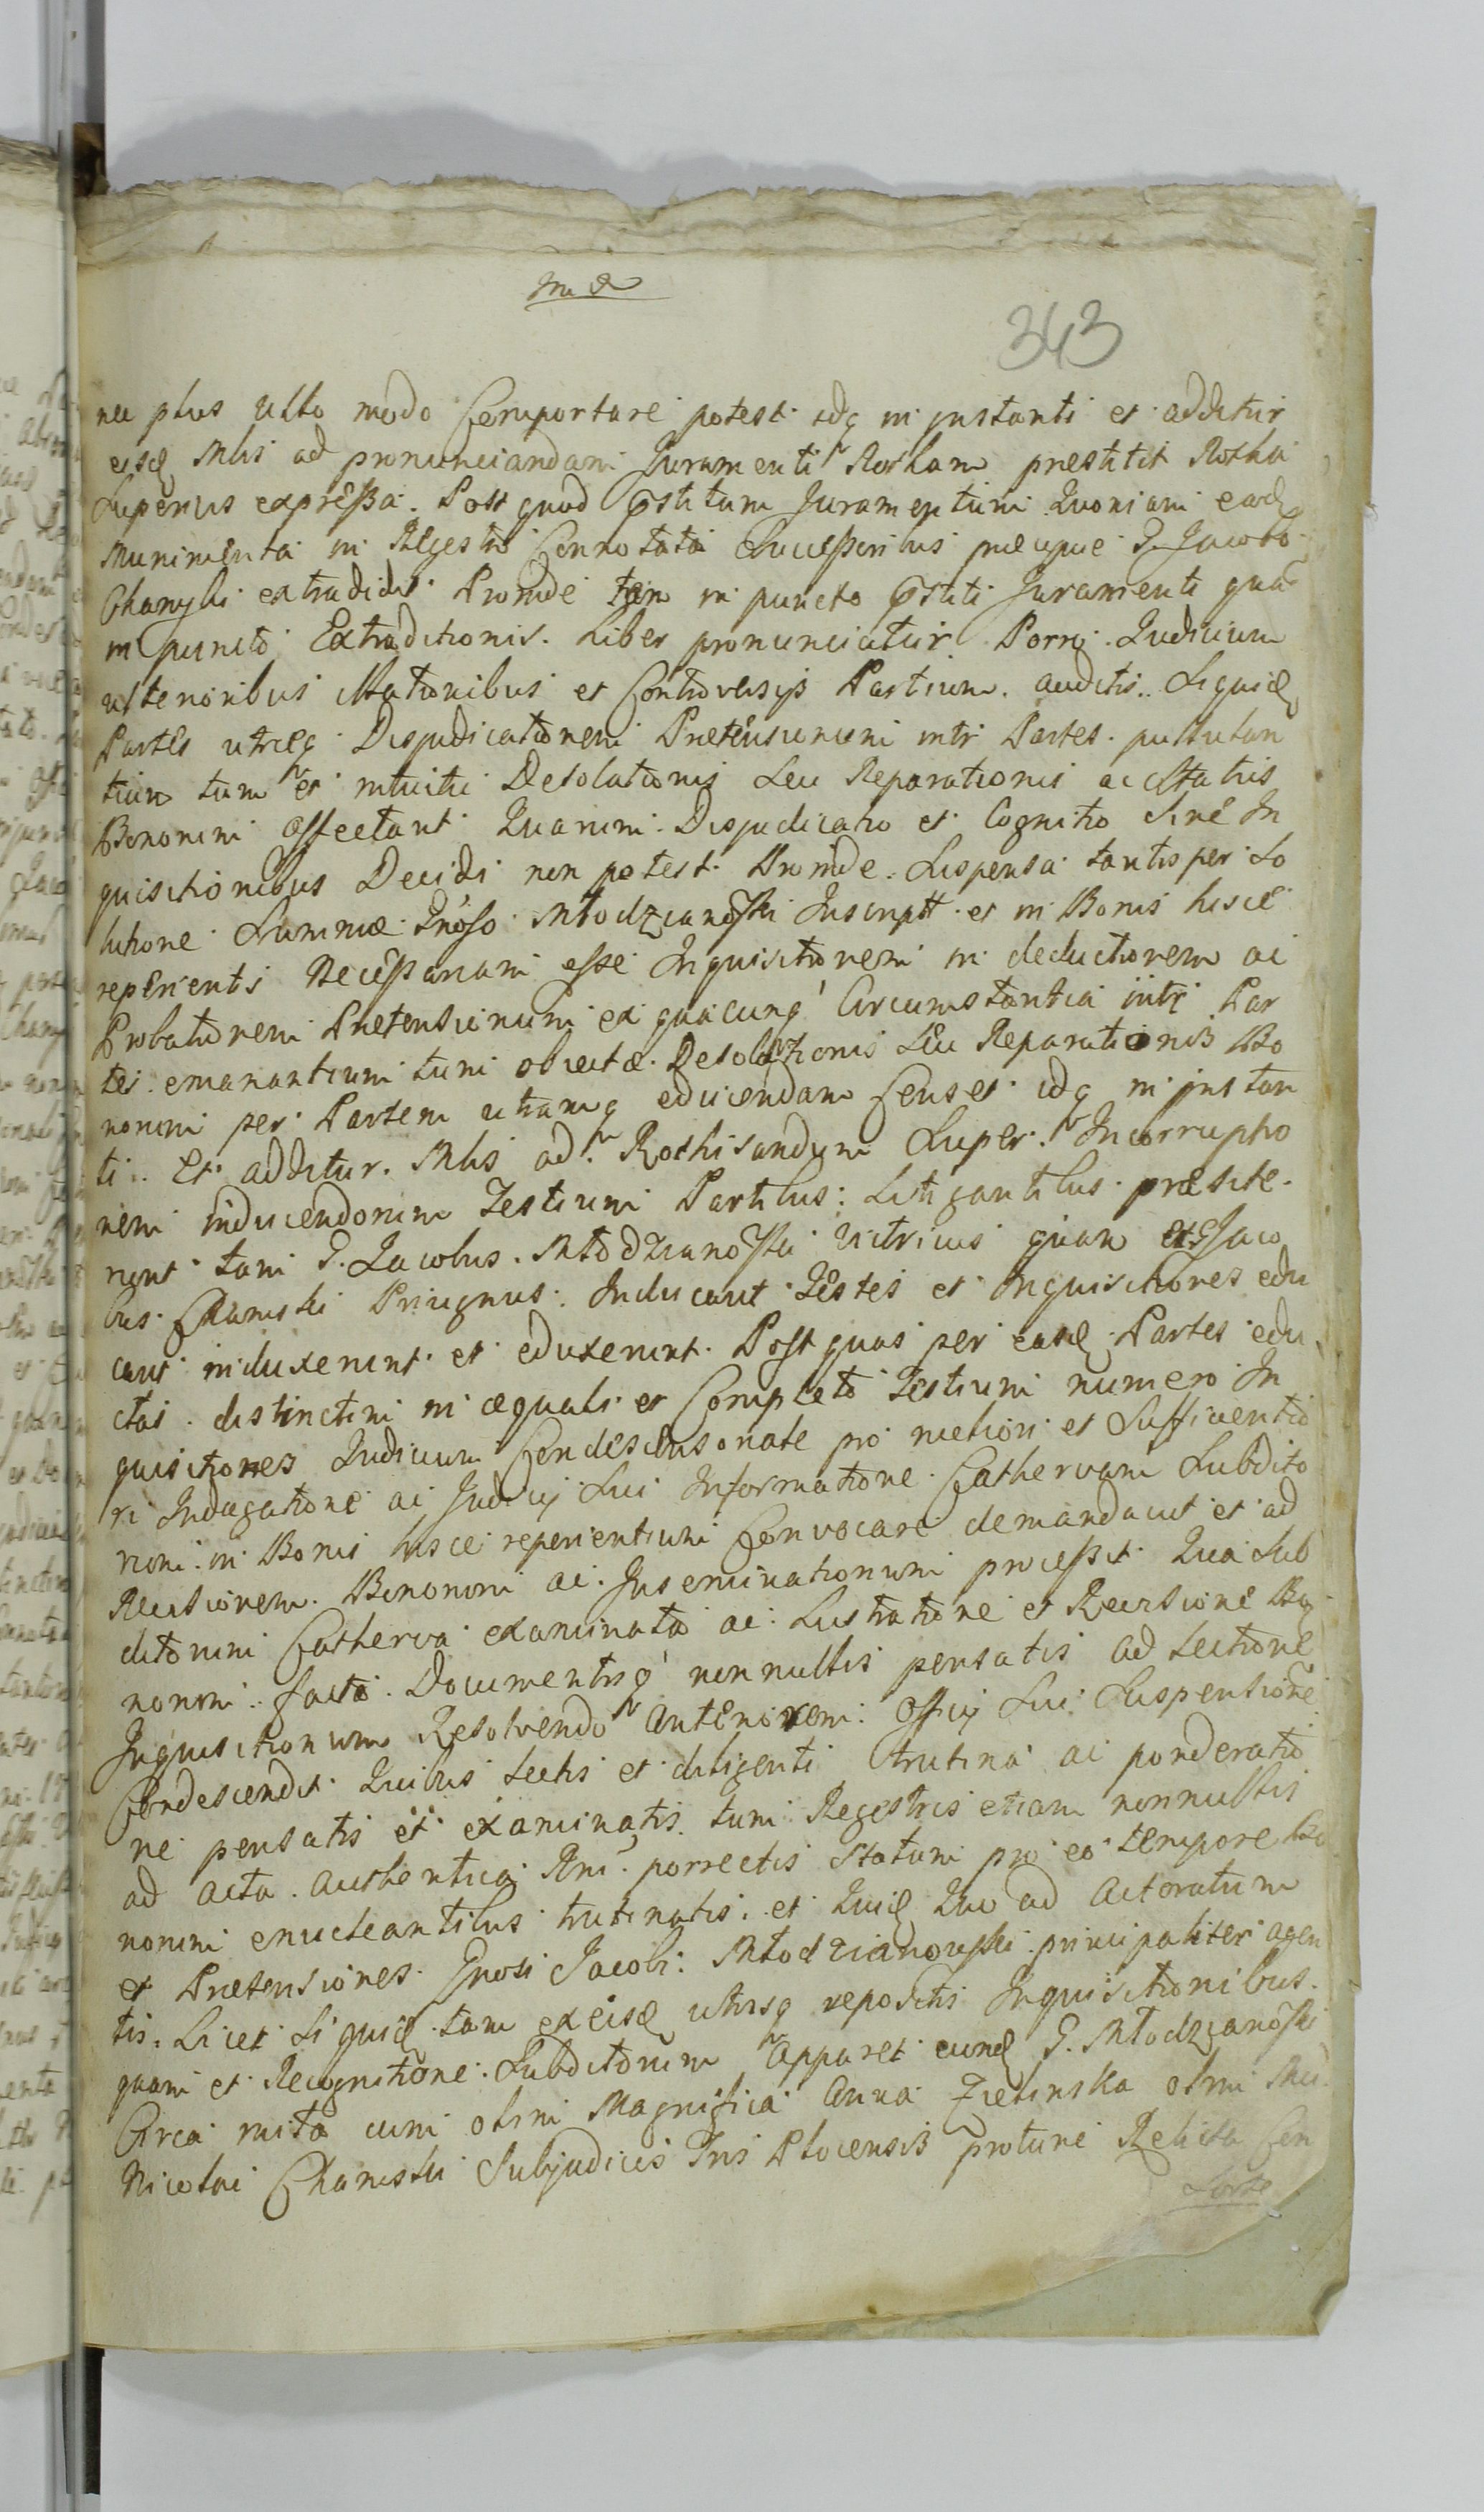 343
nec plus ullo modo Comportare potest idq in instanti et additur
eisd Mlis ad pronunciandam Juramenti Rotham prestitit Rotha
Superius expressa. Post quod pstitum Juramentum Quoniam ead
Munimenta in Regestro Connotata Successoribus precipue G. Jacobo
Chamski extradidit Proinde tam in puncto pstiti Juramenti qua
in puncto Extraditionis. Liber pronunciatur. Porro Judicium
ulterioribus Illationibus et Controversijs Partium auditis. Siquid
Partes utreq Disjudicationem Pretensionum intr Partes pullulan
tium tum et intuitu Desolationis Seu Reparationis ac Status
Bonorum affectant Quarum Disjudicatio et Cognitio Sine In
quisitionibus Decidi non potest. Proinde Suspensa tantisper So
lutione Summæ Gnoso Młodzianoski Inscript et in Bonis hisce
reperienti Necessariam esse Inquisitionem in deductionem ac
Probationem Pretensionum ex quacunq Circumstantia intr Par
tes emanantium tum objectæ Desolationis Seu Reparationis Bo
norum per Partem utramq educendam Censet idq in instan
ti. Et additur Mlis ad Rothisandum Super Incorruptio
nem inducendorum Testium Partibus Litigantibus præsite-
runt tam G. Jacobus Młodzianoski Vitricus quam et G Jaco
bus Chamski Privignus. Inducant Testes et Inquisitiones edu
cant induxerunt et eduxerunt. Post quas per easd Partes edu
ctas distinctim in æquali et Completo Testium numero In
quisitiones Judicium Condescensionale pro meliori et Sufficientio
ri Indagatione ac Judicij Sui Informatione Cathervam Subdito
rum in Bonis hisce reperientium Convocare demandavit et ad
Revisionem Bonorum ac Inseminationum processit Qua Sub
ditorum Catherva examinata ac Lustratione et Revisione Bo
norum facta Documentisq nonnullis pensatis ad Lectione
Inquisitionum Resolvendo anteriorem Officij Sui Suspensione
Condescendit Quibus Lectis et diligenti trutina ac ponderatio
ne pensatis et examinatis tum Regestris etiam nonnullis
ad acta authentica porrectis Statum pro eo tempore Bo
norum enucleantibus trutinatis et Quid Quo ad Actoratum
et Pretensiones Gnosi Jacobi Młodzianowski principaliter agen
tis. Licet Siquid tam ex eisd utrisq repositis Inquisitionibus
quam et Recognitione Subditorum apparet eund G. Młodzianoski
Circa inita cum olim Magnifica Anna Zielinska olim
Nicolai Chamski Subjudicis Tris Plocensis protunc Relicta Con
Sorte